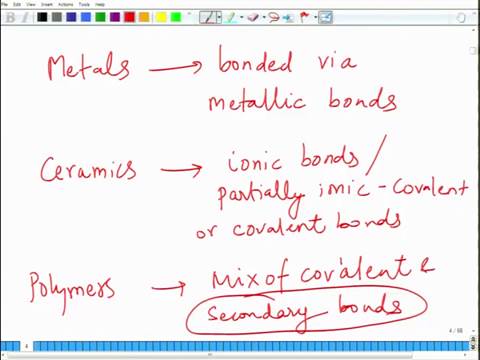 File Edit View Insert Actions Tools Help
Metals → bonded via
metallic bonds
Ceramics → ionic bonds/
partially ionic-covalent
or covalent bonds
Polymers → Mix of covalent &
secondary bonds
4 / 98
4